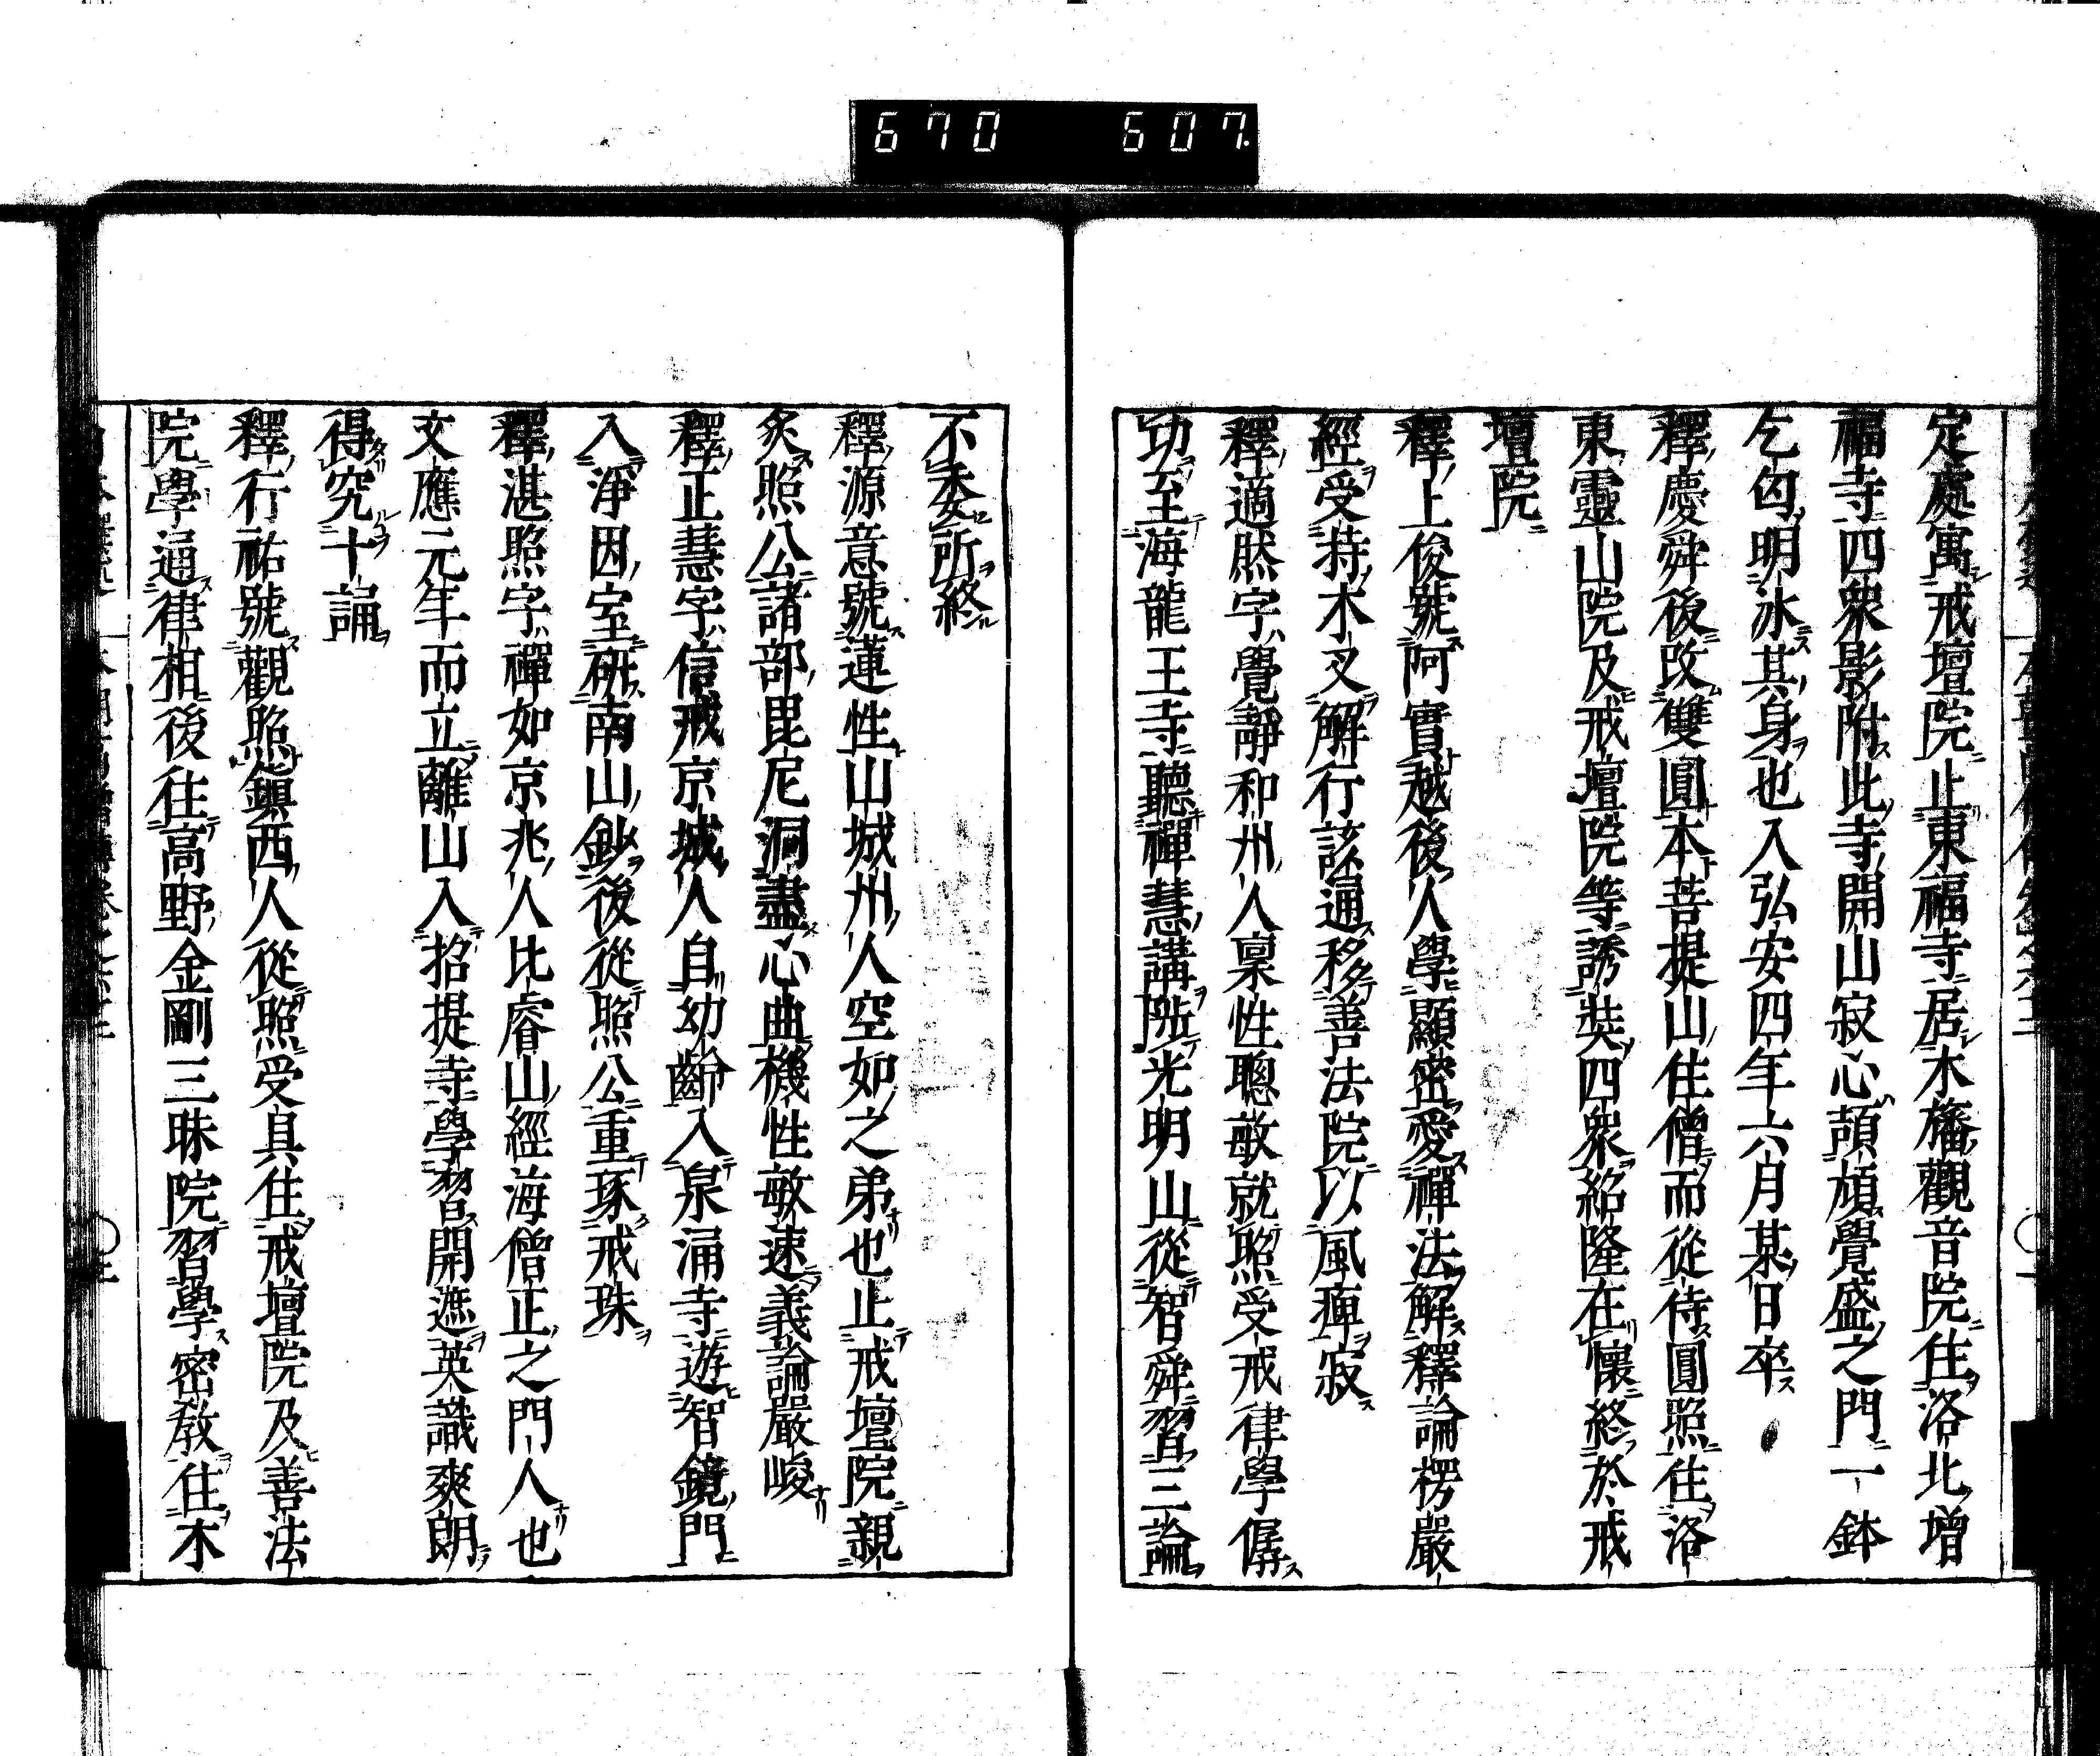 670 607.
定處寓戒壇院止東福寺居木幡觀音院住洛北增
福寺四衆影附此寺開山寂心頡頏覺盛之門一鉢
乞匃明冰其身也入弘安四年六月某日卒
釋慶舜後改雙圓本菩提山住僧而從侍圓照住洛
東靈山院及戒壇院等誘奘四衆紹隆在懷終於戒
壇院
釋上俊號阿實越後人學顯密愛禪法解釋論楞嚴
經受持木叉解行該通移善法院以風痺寂
釋適然字覺靜和州人稟性聰敏就照受戒律學儔
功至海龍王寺聽禪慧講陟光明山從智舜習三論
不委所終
釋源意號蓮性山城州人空如之弟也止戒壇院親
炙照公諸部毘尼洞盡心曲機性敏速義論嚴峻
釋正慧字信戒京城人自幼齡入泉涌寺遊智鏡門
入淨因室研南山鈔後從照公重琢戒珠
釋湛照字禪如京兆人比睿山經海僧正之門人也
文應元年而立離山入招提寺學習開遮英識爽朗
得究十誦
釋行祐號觀照鎭西人從照受具住戒壇院及善法
院學通律相後住高野金剛三昧院習學密敎住木